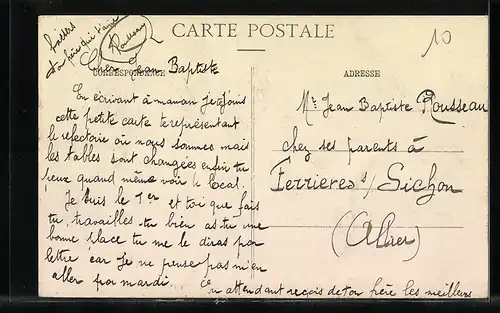 CARTE POSTALE
10
baisers
ton frère qui t'aime
Rousseau
CORRESPONDANCE
Cher Jean Baptiste
En écrivant à maman je te joins
cette petite carte te représentant
le refectoire où nous sommes mais
les tables sont changées enfin tu
veux quand même voir le local.
Je suis le 1er et toi que fais
tu, travailles-tu bien as-tu une
bonne place tu me le diras par
lettre car je ne pense pas m'en
aller pour mardi.
En attendant reçois de ton frère les meilleurs
ADRESSE
Mr Jean Baptiste Rousseau
chez ses parents à
Ferrières s/ Sichon
(Allier)